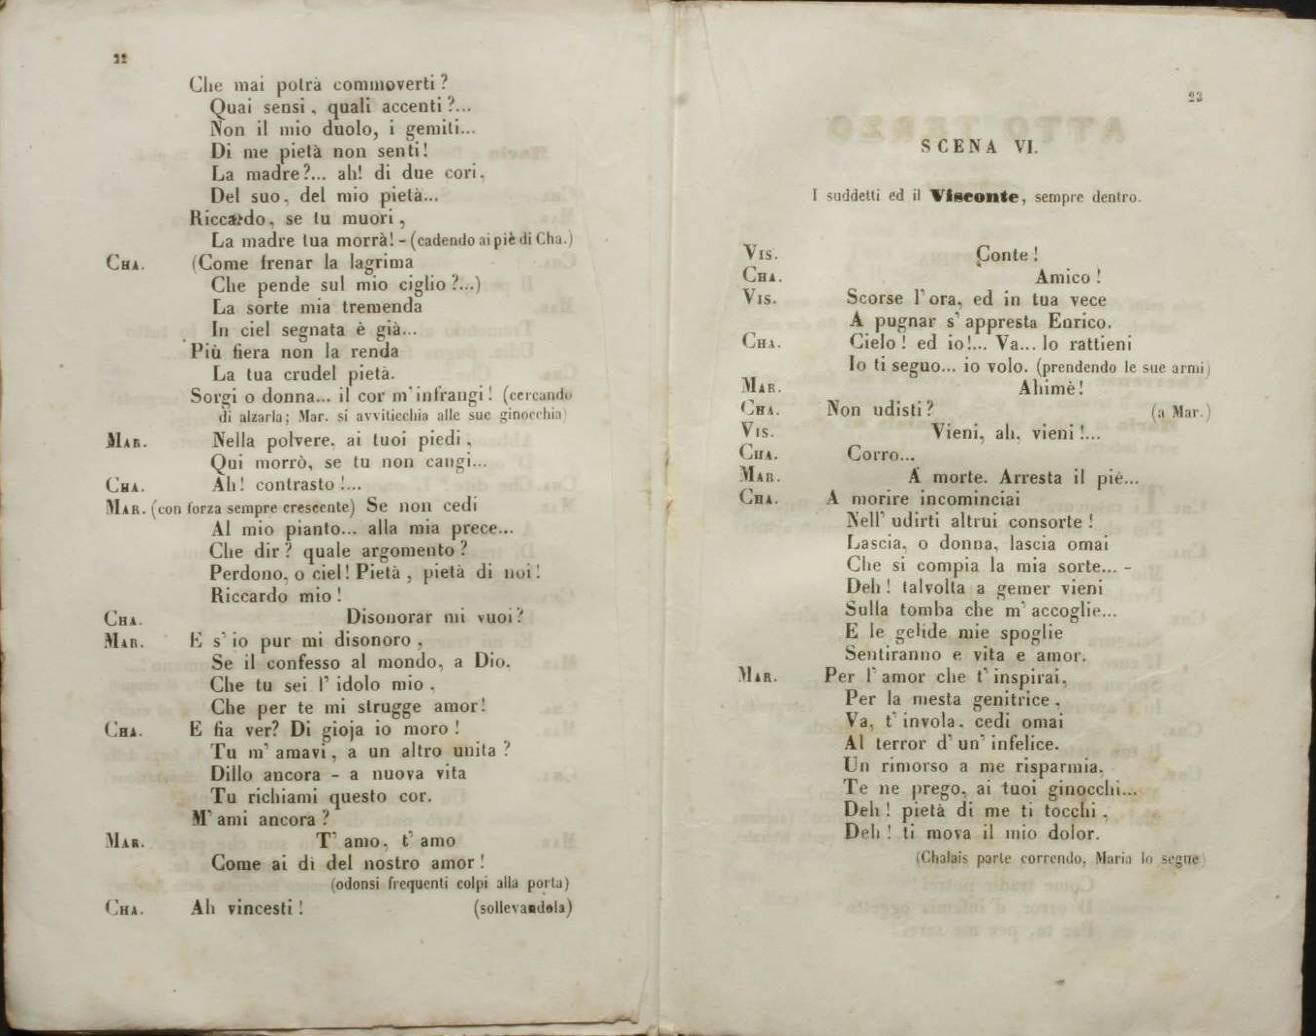 22
Che mai potrà commoverti ?
Quai sensi, quali accenti ?...
Non il mio duolo, i gemiti...
Di me pietà non senti!
La madre?... ah! di due cori,
Del suo, del mio pietà...
Riccardo, se tu muori ,
La madre tua morrà! - (cadendo ai piè di Cha.)
CHA. (Come frenar la lagrima
Che pende sul mio ciglio ?...)
La sorte mia tremenda
In ciel segnata è già...
Più fiera non la renda
La tua crudel pietà.
Sorgi o donna... il cor m'infrangi! (cercando
di alzarla; Mar. si avviticchia alle sue ginocchia)
MAR. Nella polvere, ai tuoi piedi ,
Qui morrò, se tu non cangi...
CHA. Ah! contrasto !...
MAR. (con forza sempre crescente) Se non cedi
Al mio pianto... alla mia prece...
Che dir ? quale argomento ?
Perdono, o ciel! Pietà , pietà di noi!
Riccardo mio !
CHA. Disonorar mi vuoi?
MAR. E s' io pur mi disonoro ,
Se il confesso al mondo, a Dio,
Che tu sei l' idolo mio ,
Che per te mi strugge amor!
CHA. E fia ver? Di gioja io moro !
Tu m' amavi, a un altro unita ?
Dillo ancora - a nuova vita
Tu richiami questo cor.
M' ami ancora ?
MAR. T' amo, t' amo
Come ai dì del nostro amor!
(odonsi frequenti colpi alla porta)
CHA. Ah vincesti ! (sollevandola)
23
SCENA VI.
I suddetti ed il Visconte, sempre dentro.
VIS. Conte !
CHA. Amico !
VIS. Scorse l' ora, ed in tua vece
A pugnar s' appresta Enrico.
CHA. Cielo ! ed io!... Va... lo rattieni
Io ti seguo... io volo. (prendendo le sue armi)
MAR. Ahimè!
CHA. Non udisti ? (a Mar.)
VIS. Vieni, ah, vieni !...
CHA. Corro...
MAR. A morte. Arresta il piè...
CHA. A morire incominciai
Nell' udirti altrui consorte !
Lascia, o donna, lascia omai
Che si compia la mia sorte... -
Deh ! talvolta a gemer vieni
Sulla tomba che m' accoglie...
E le gelide mie spoglie
Sentiranno e vita e amor.
MAR. Per l' amor che t' inspirai,
Per la mesta genitrice ,
Va, t' invola, cedi omai
Al terror d' un' infelice.
Un rimorso a me risparmia,
Te ne prego, ai tuoi ginocchi...
Deh ! pietà di me ti tocchi ,
Deh ! ti mova il mio dolor.
(Chalais parte correndo, Maria lo segue)